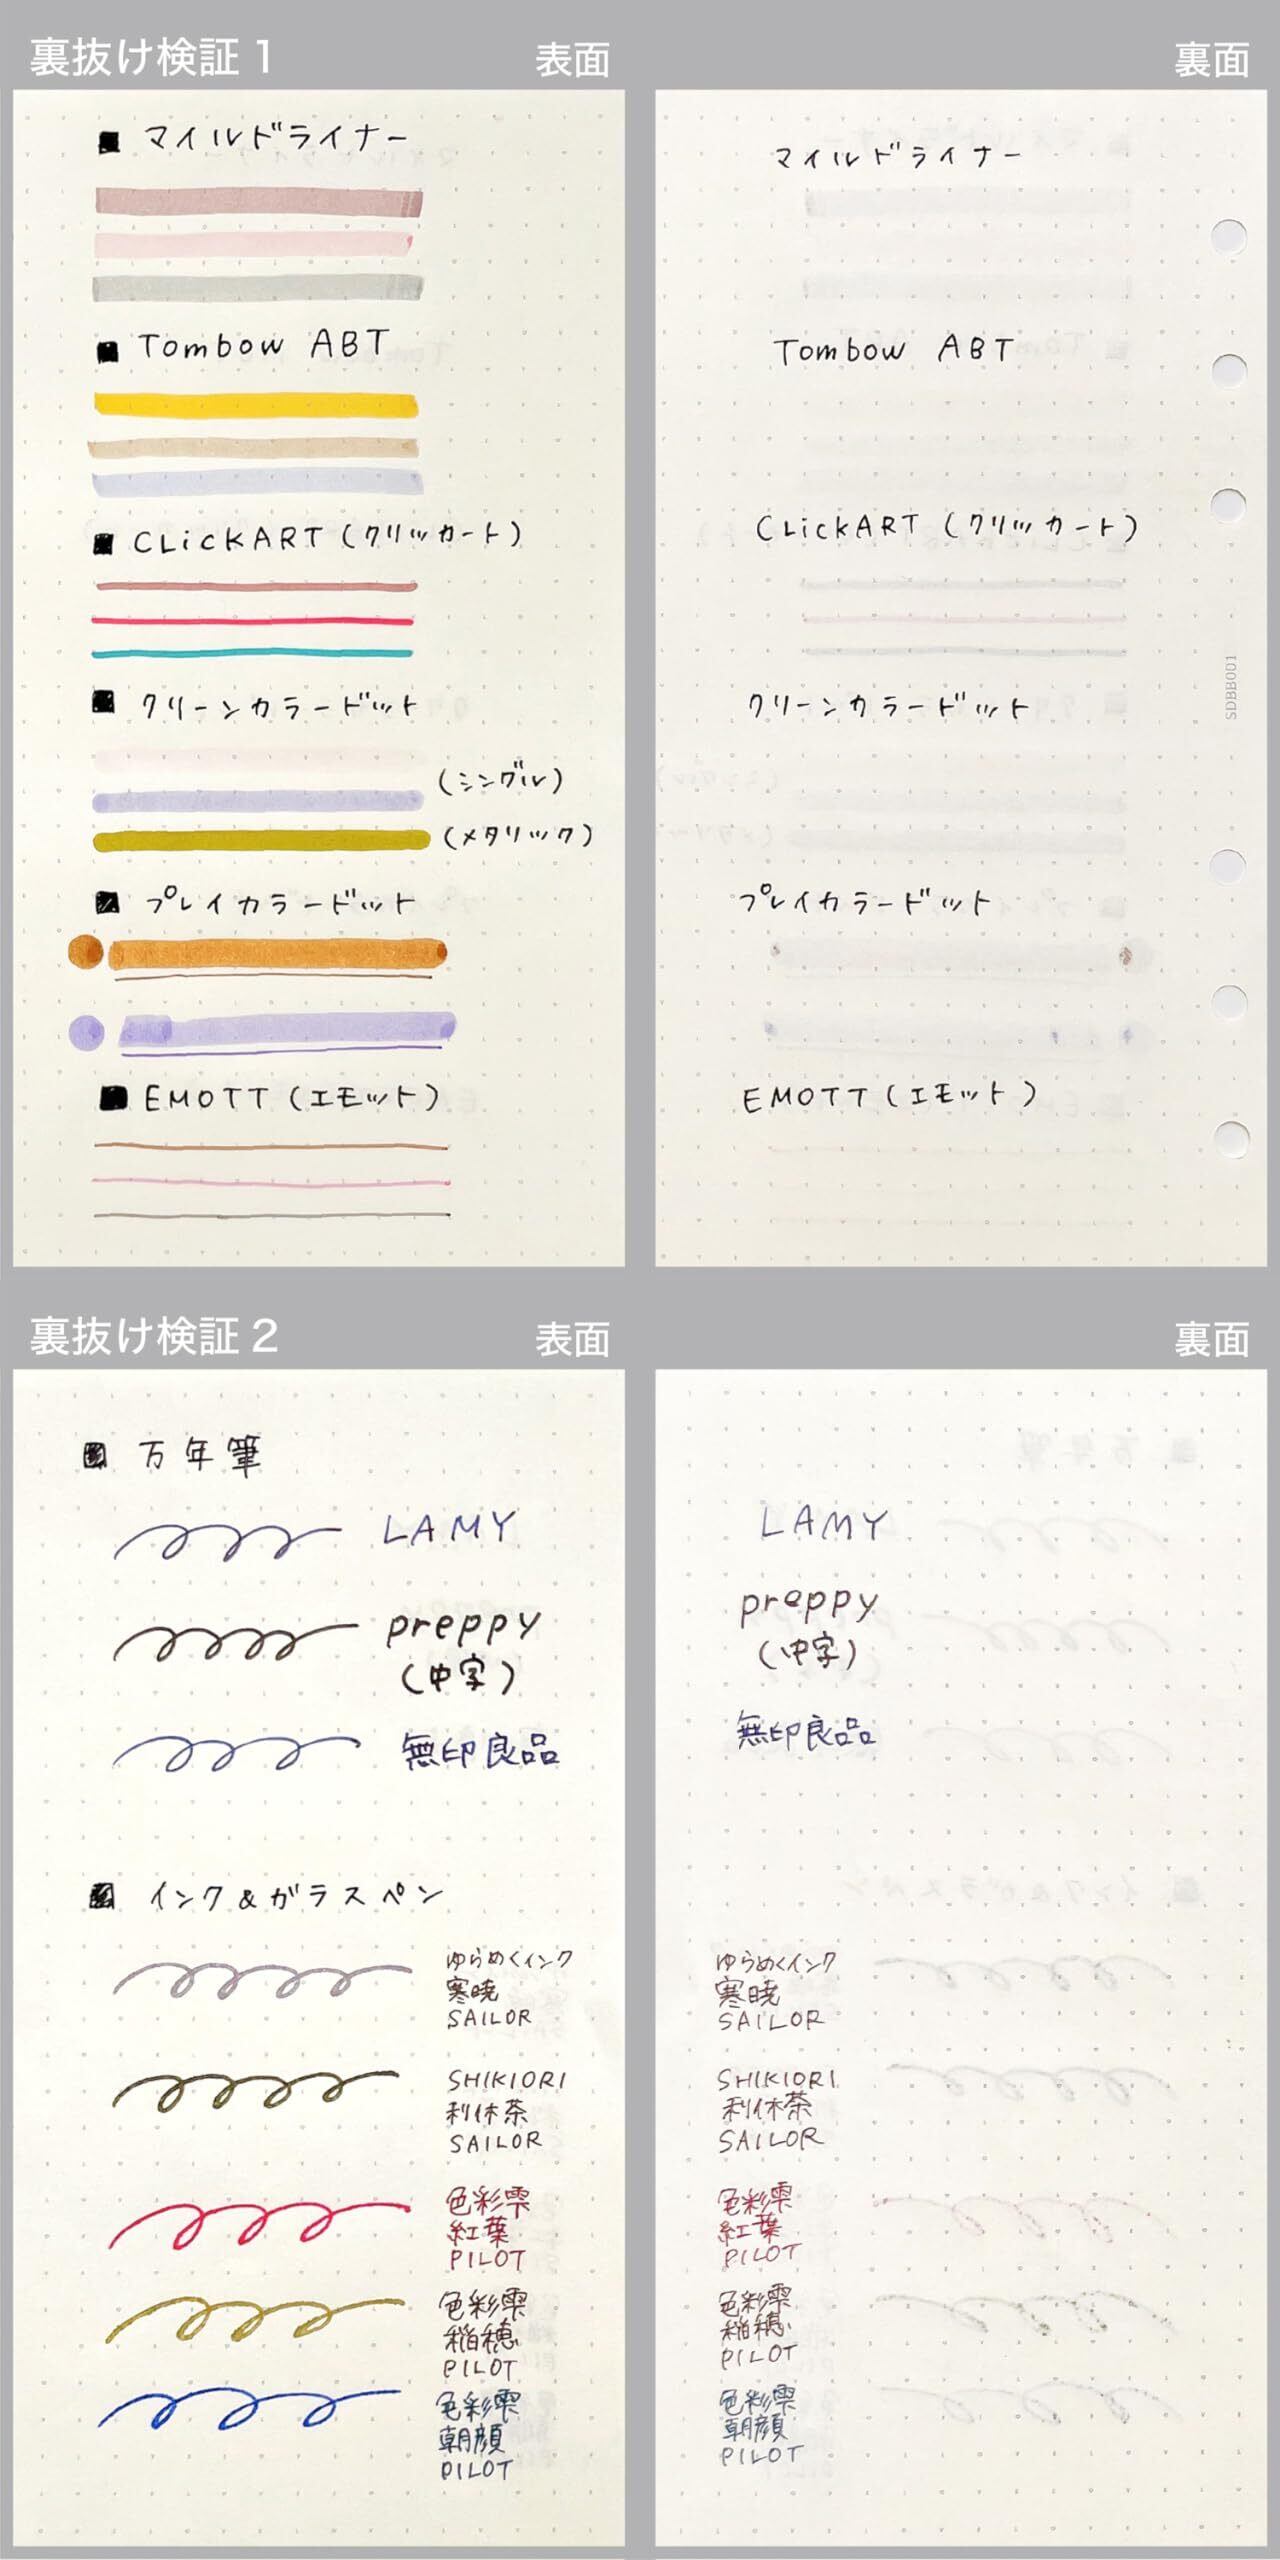 裏抜け検証1
表面
裏面
■ マイルドライナー
■ Tombow ABT
■ CLiCKART(クリッカート)
■ クリーンカラードット
(シングル)
(メタリック)
■ プレイカラードット
■ EMOTT(エモット)
マイルドライナー
Tombow ABT
CLiCKART(クリッカート)
クリーンカラードット
SDBB001
プレイカラードット
EMOTT(エモット)
裏抜け検証2
表面
裏面
■ 万年筆
LAMY
preppy
(中字)
無印良品
■ インク&ガラスペン
ゆらめくインク
寒暁
SAILOR
SHIKIORI
利休茶
SAILOR
色彩雫
紅葉
PILOT
色彩雫
稲穂
PILOT
色彩雫
朝顔
PILOT
LAMY
preppy
(中字)
無印良品
ゆらめくインク
寒暁
SAILOR
SHIKIORI
利休茶
SAILOR
色彩雫
紅葉
PILOT
色彩雫
稲穂
PILOT
色彩雫
朝顔
PILOT